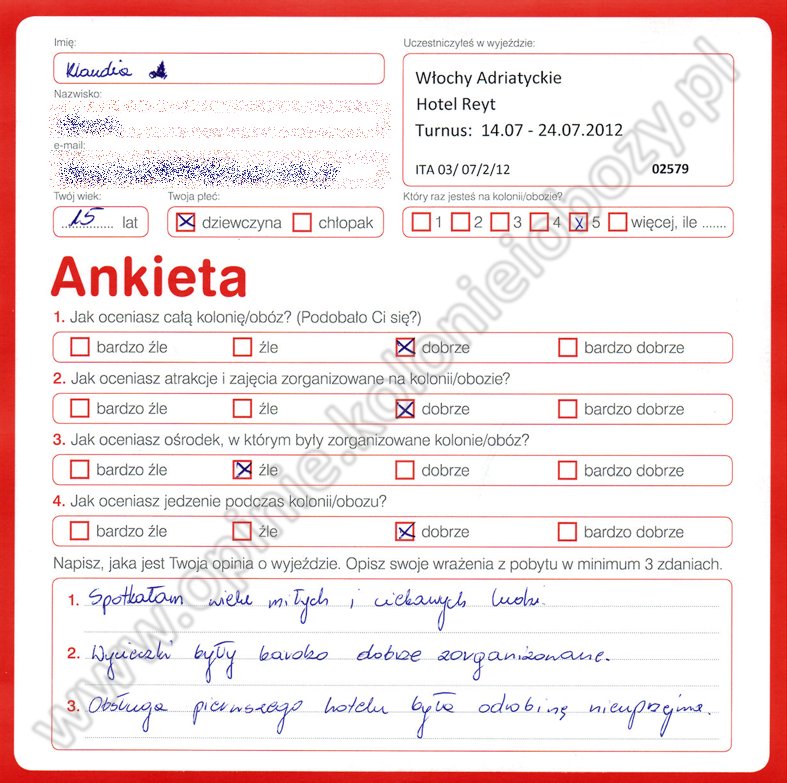 Imię:
Klaudia
Nazwisko:
e-mail:
Twój wiek:
15 lat
Twoja płeć:
dziewczyna chłopak
Uczestniczyłeś w wyjeździe:
Włochy Adriatyckie
Hotel Reyt
Turnus: 14.07 - 24.07.2012
ITA 03/ 07/2/12 02579
Który raz jesteś na kolonii/obozie?
1 2 3 4 x 5 więcej, ile .......
Ankieta
1. Jak oceniasz całą kolonię/obóz? (Podobało Ci się?)
bardzo źle źle dobrze bardzo dobrze
2. Jak oceniasz atrakcje i zajęcia zorganizowane na kolonii/obozie?
bardzo źle źle dobrze bardzo dobrze
3. Jak oceniasz ośrodek, w którym były zorganizowane kolonie/obóz?
bardzo źle źle dobrze bardzo dobrze
4. Jak oceniasz jedzenie podczas kolonii/obozu?
bardzo źle źle dobrze bardzo dobrze
Napisz, jaka jest Twoja opinia o wyjeździe. Opisz swoje wrażenia z pobytu w minimum 3 zdaniach.
1. Spotkałam wiele miłych i ciekawych ludzi.
2. Wycieczki były bardzo dobrze zorganizowane.
3. Obsługa pierwszego hotelu była odrobinę nieuprzejma.
www.opinie.kolonieiobozy.pl